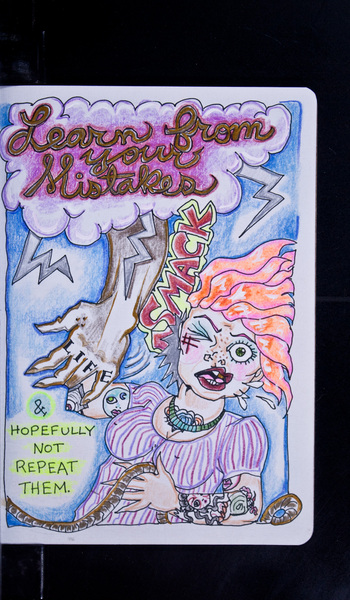 Learn from
your
Mistakes
SMACK
LIFE
&
HOPEFULLY
NOT
REPEAT
THEM.